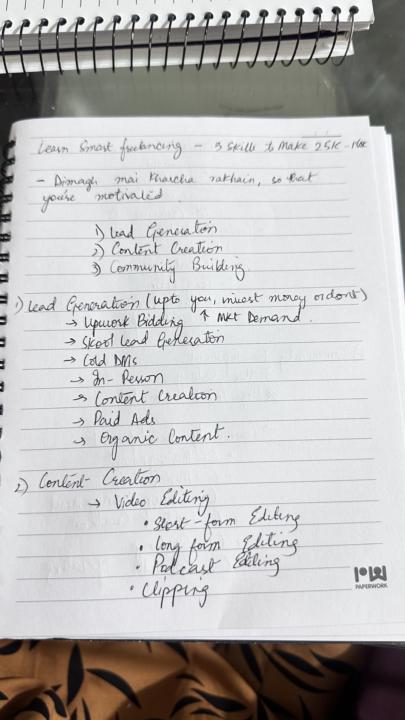 Learn Smart freelancing - 3 Skills to Make 25K -
- Dimagh mai kharcha rakhain, so that
you're motivated.
1) Lead Generation
2) Content Creation
3) Community Building.
1) Lead Generation (upto you, invest money or dont)
→ Upwork Bidding ↑ Mkt Demand.
→ Skool Lead Generation
→ Cold DMs
→ In-Person
→ Content Creation
→ Paid Ads
→ Organic Content.
2) Content-Creation
→ Video Editing
• Short-form Editing
• Long form Editing
• Podcast Editing
• Clipping
PAPERWORK